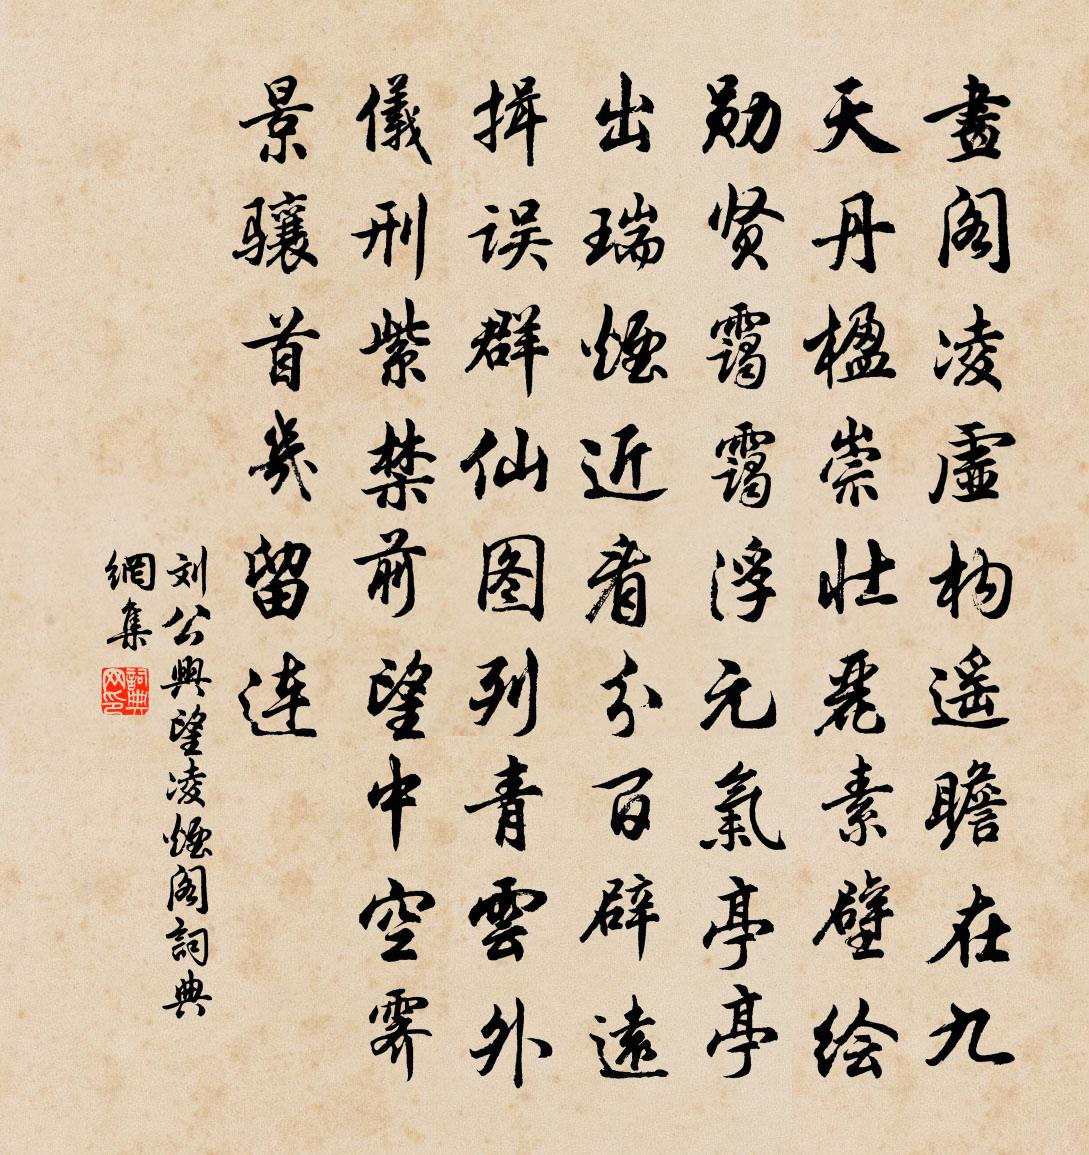 畫阁凌虚构遥瞻在九
天丹楹崇壮麗素壁绘
勋贤霭霭浮元氣亭亭
出瑞煙近看分百辟遠
揖误群仙图列青雲外
儀刑紫禁前望中空霁
景骧首幾留连
刘公興望凌煙阁詞典
網集
詞典
网印